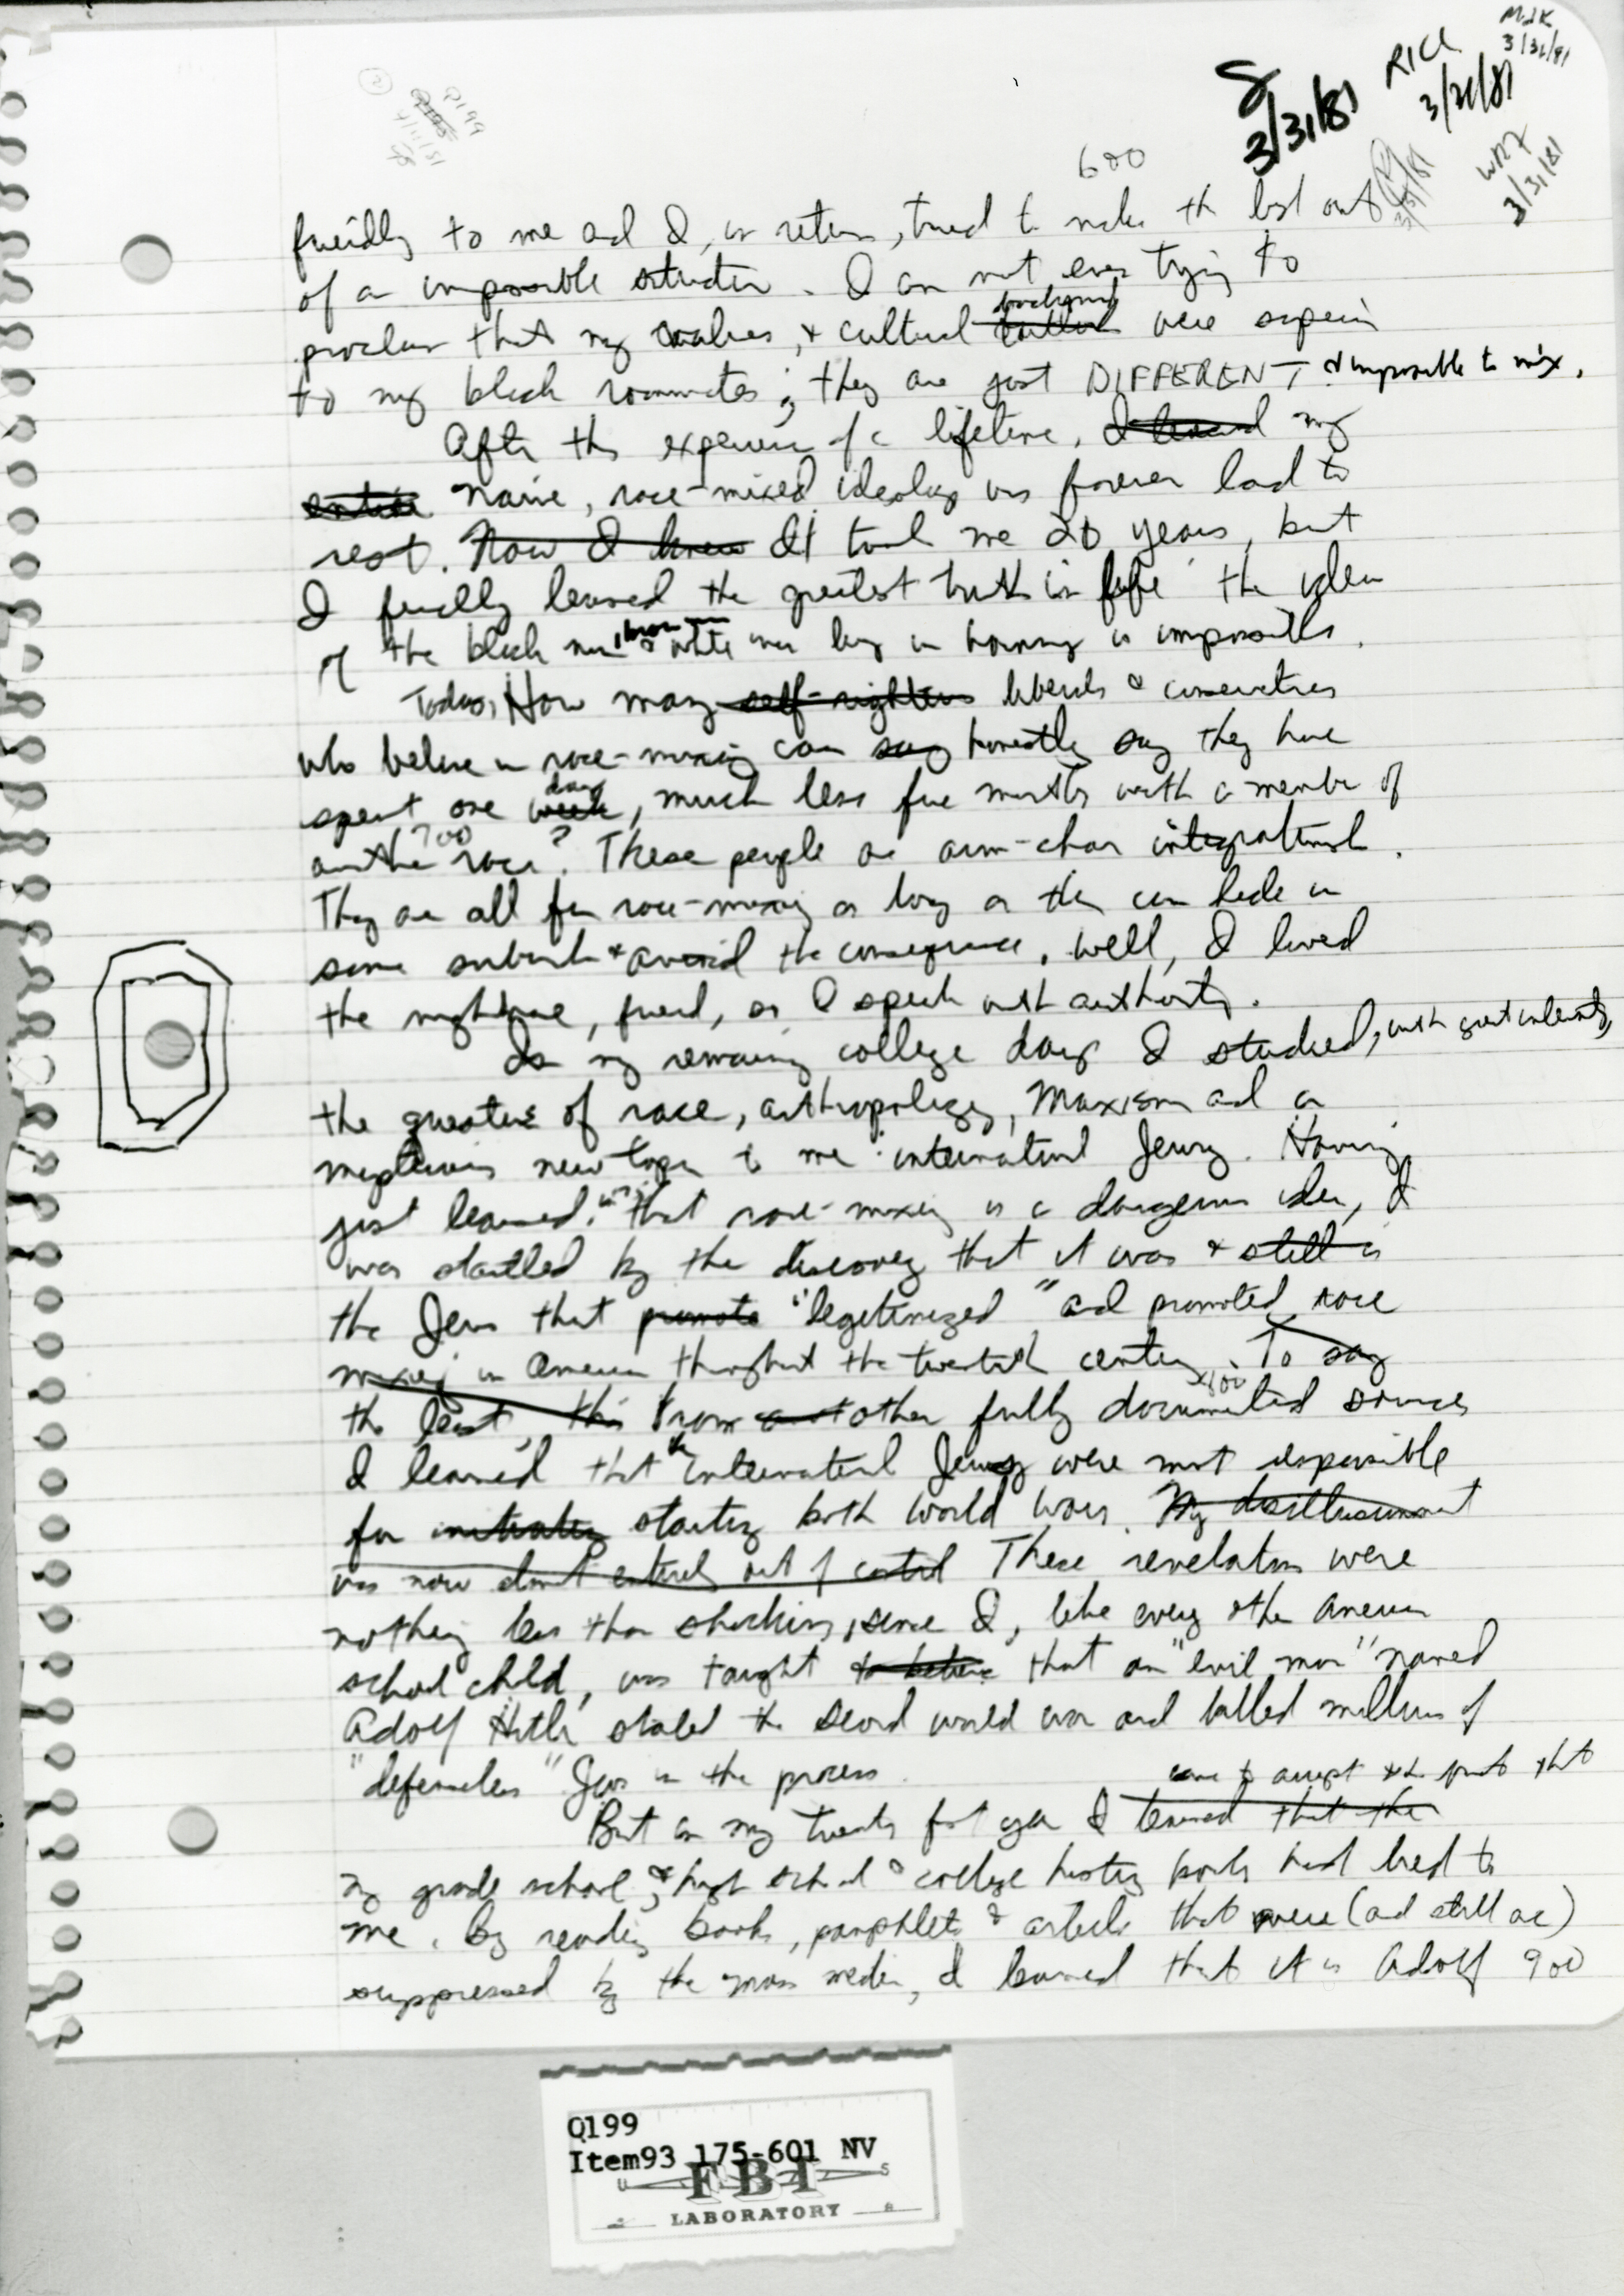 Q199
S
3/31/81
RICL
3/31/81
MJK
3/31/81
WRF
3/31/81
600
friendly to me and I, in return, tried to make the best out
of an impossible situation. I am not even trying to
proclaim that my values, & cultural background were superior
to my black roommates; they are just DIFFERENT & impossible to mix.
After this experience of a lifetime, I learned my
entire naive, race-mixed ideology was forever laid to
rest. Now I knew It took me 20 years, but
I finally learned the greatest truth in life: the idea
of the black man, brown man & white man living in harmony is impossible.
Today, How many self-righteous liberals & conservatives
who believe in race-mixing can say honestly say they have
spent one week day, much less five months with a member of
another race? These people are arm-chair integrationists.
700
They are all for race-mixing as long as they can hide in
some suburb & avoid the consequences. Well, I lived
the nightmare, friend, so I speak with authority.
In my remaining college days I studied, with great intensity,
the questions of race, anthropology, Marxism and a
mysterious new topic to me: international Jewry. Having
just learned that race-mixing is a dangerous idea, I
was startled by the discovery that it was & still is
the Jews that promote "legitimized" and promoted race
mixing in America throughout the twentieth century. To say
800
the least, this From other fully documented sources
I learned that the international Jewry were most responsible
for initiating starting both world wars. My disillusionment
was now almost entirely out of control These revelations were
nothing less than shocking, since I, like every other American
school child, was taught to believe that an "evil man" named
Adolf Hitler started the second world war and killed millions of
"defenseless" Jews in the process.
But in my twenty first year I learned that the came to accept the fact that
my grade school, & high school & college history books had lied to
me. By reading books, pamphlets & articles that were (and still are)
suppressed by the mass media, I learned that it is Adolf 900
Q199
Item93 175-601 NV
U S
FBI
LABORATORY